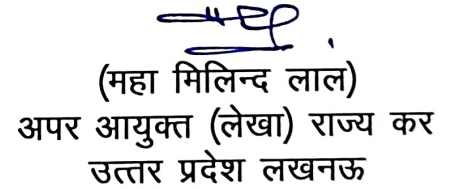 (महा मिलिन्द लाल)
अपर आयुक्त (लेखा) राज्य कर
उत्तर प्रदेश लखनऊ